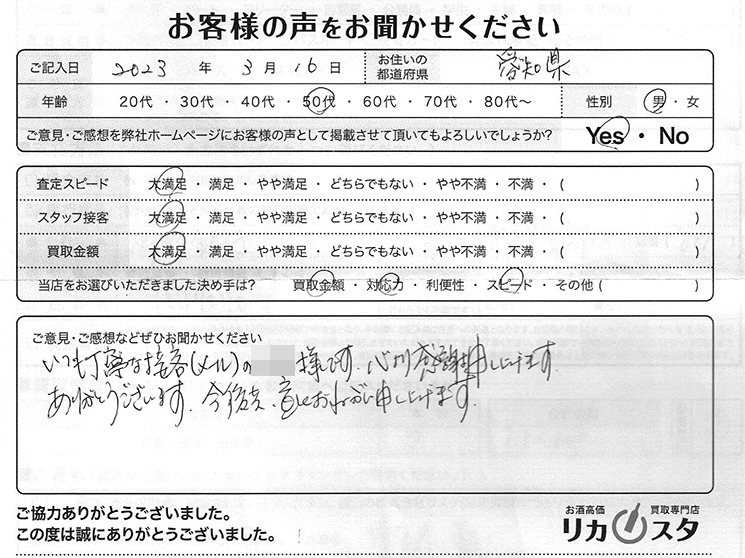 お客様の声をお聞かせください
ご記入日 2023 年 3 月 16 日 お住いの都道府県 愛知県
年齢 20代・30代・40代・50代・60代・70代・80代~ 性別 男・女
ご意見・ご感想を弊社ホームページにお客様の声として掲載させて頂いてもよろしいでしょうか? Yes・No
査定スピード 大満足・満足・やや満足・どちらでもない・やや不満・不満・( )
スタッフ接客 大満足・満足・やや満足・どちらでもない・やや不満・不満・( )
買取金額 大満足・満足・やや満足・どちらでもない・やや不満・不満・( )
当店をお選びいただきました決め手は? 買取金額・対応力・利便性・スピード・その他( )
ご意見・ご感想などぜひお聞かせください
いつも丁寧な接客(メール)の 様です、心から感謝申し上げます
ありがとうございます、今後共、宜しくおねがい申し上げます。
ご協力ありがとうございました。
この度は誠にありがとうございました。
お酒高価 買取専門店
リカスタ